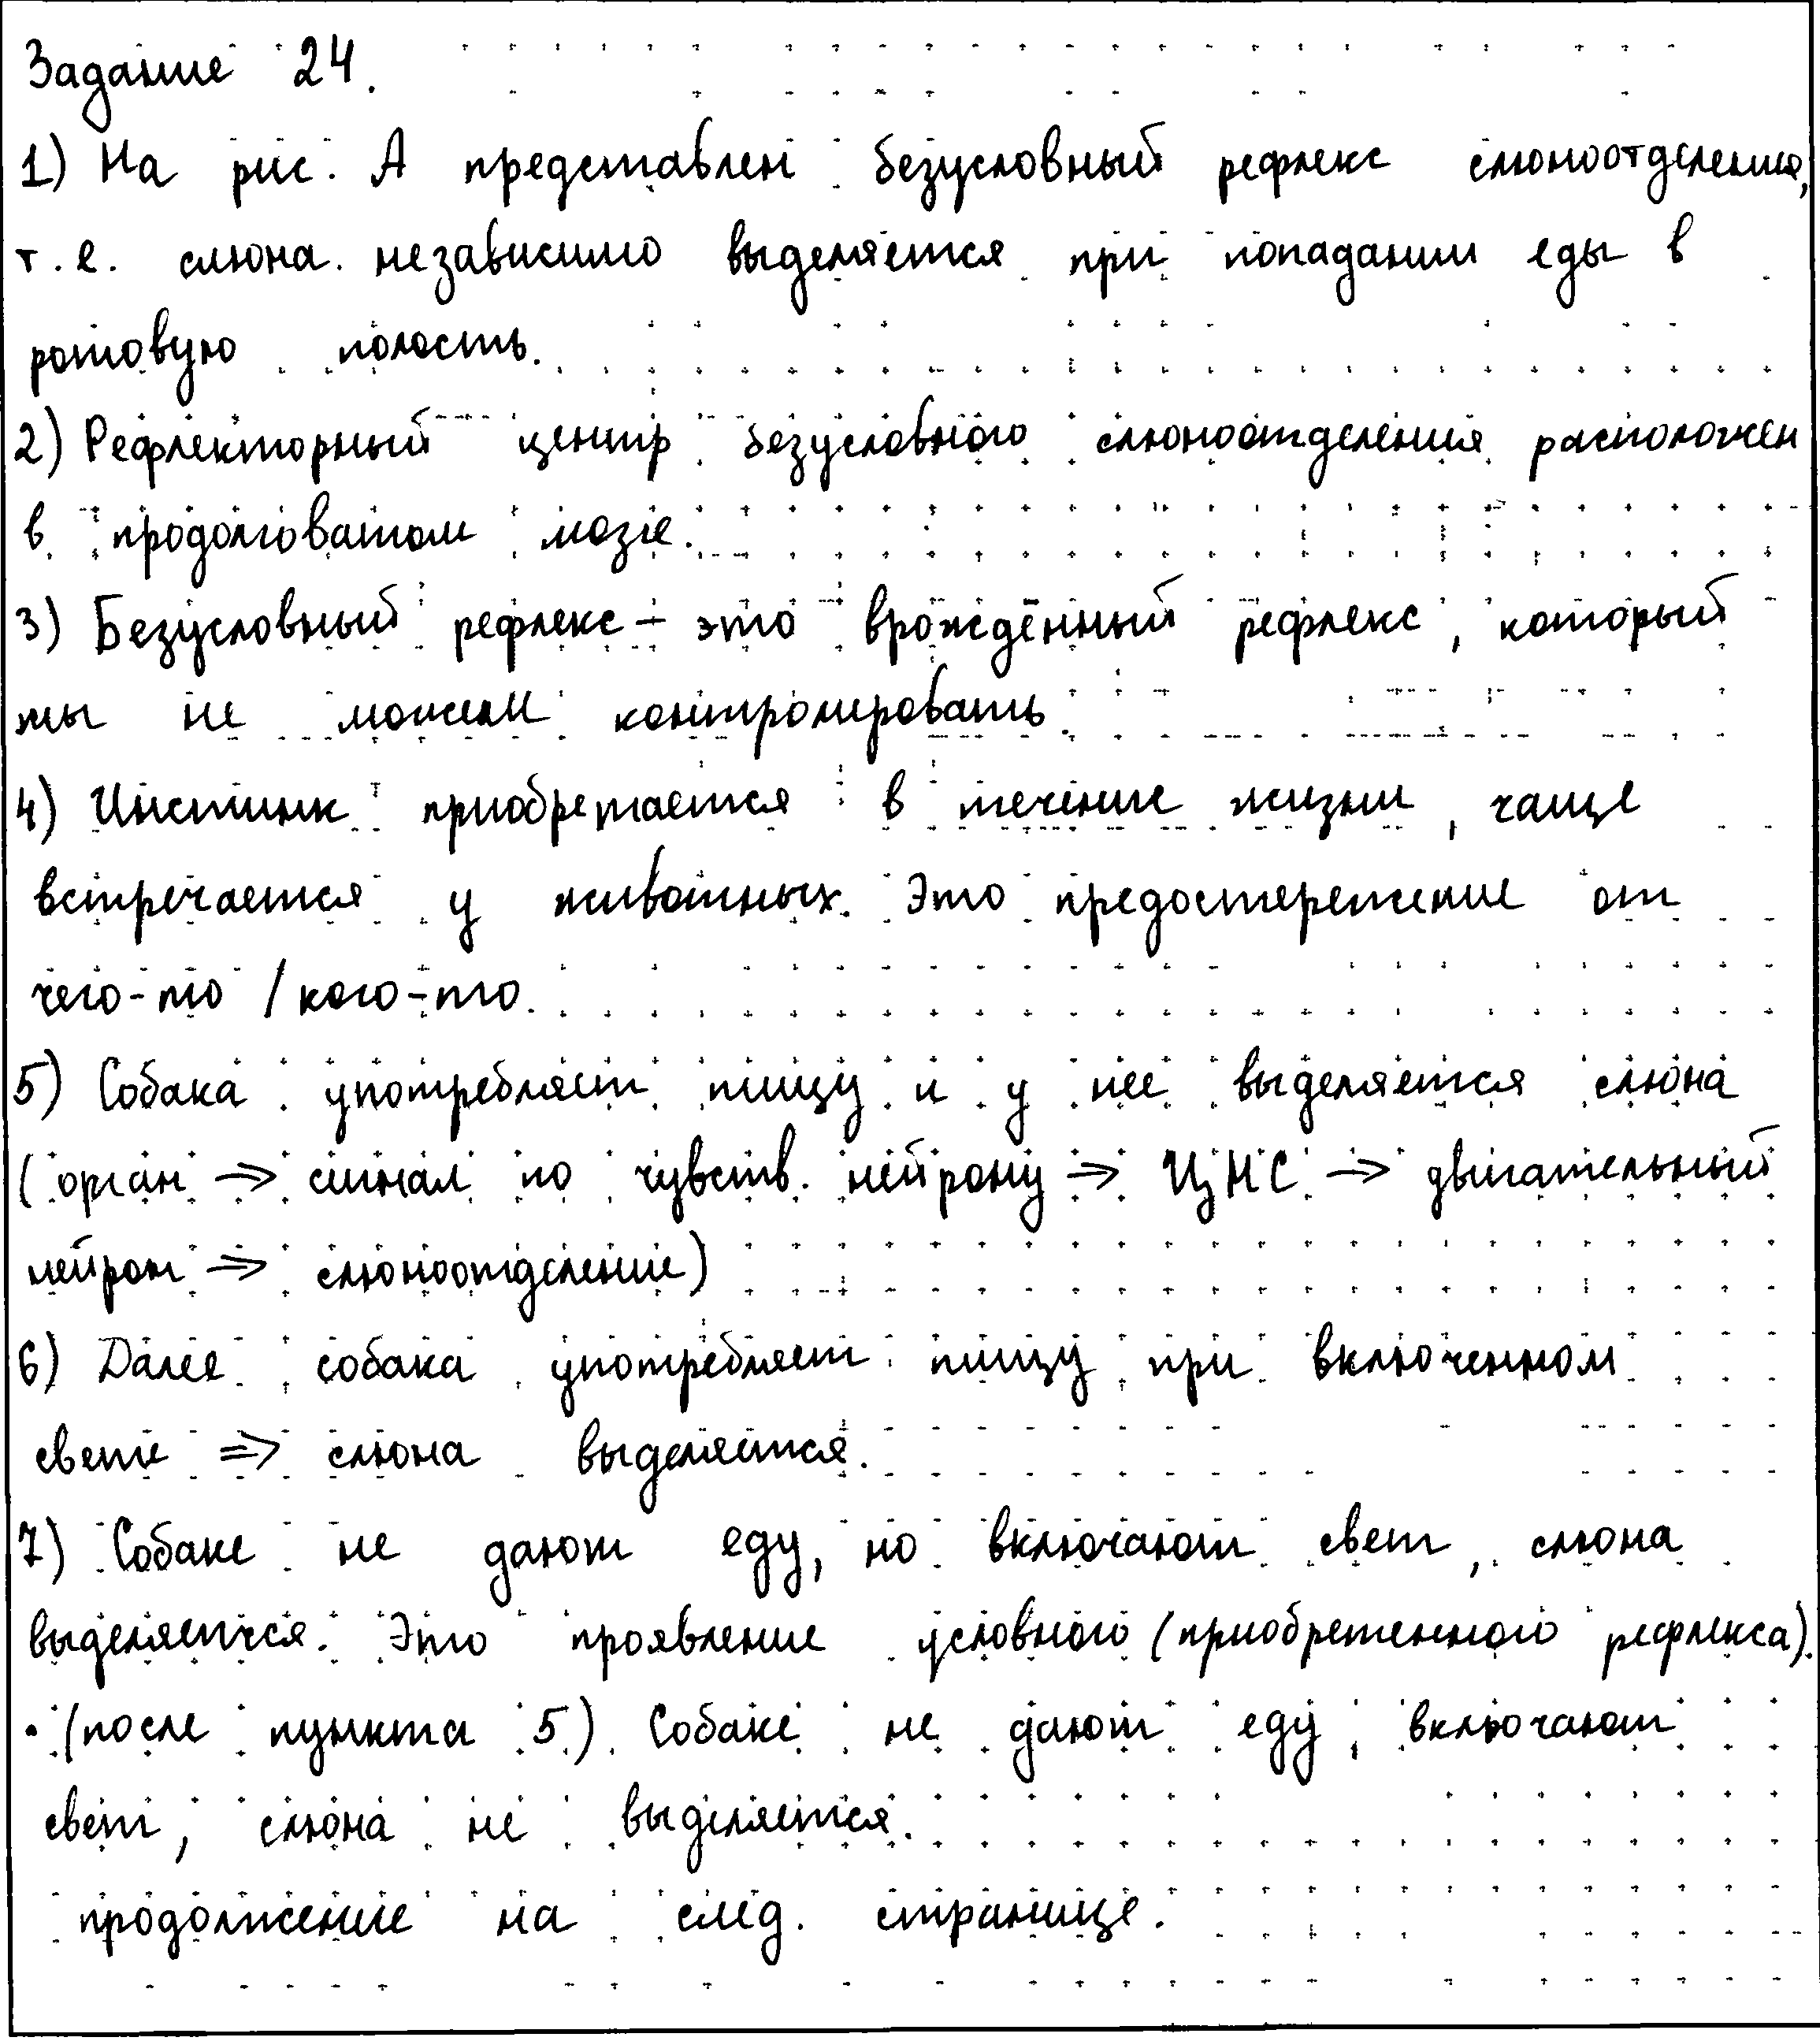 Задание 24.
1) На рис. А представлен безусловный рефлекс слюноотделения,
т.е. слюна независимо выделяется при попадании еды в
ротовую полость.
2) Рефлекторный центр безусловного слюноотделения расположен
в продолговатом мозге.
3) Безусловный рефлекс – это врождённый рефлекс, который
мы не можем контролировать.
4) Инстинк приобретается в течение жизни, чаще
встречается у животных. Это предостережение от
чего-то / кого-то.
5) Собака употребляет пищу и у нее выделяется слюна
(орган → сигнал по чувств. нейрону → ЦНС → двигательный
нейрон → слюноотделение)
6) Далее собака употребляет пищу при включенном
свете ⇒ слюна выделяется.
7) Собаке не дают еду, но включают свет, слюна
выделяется. Это проявление условного (приобретенного рефлекса).
• (после пункта 5) Собаке не дают еду, включают
свет, слюна не выделяется.
продолжение на след. странице.